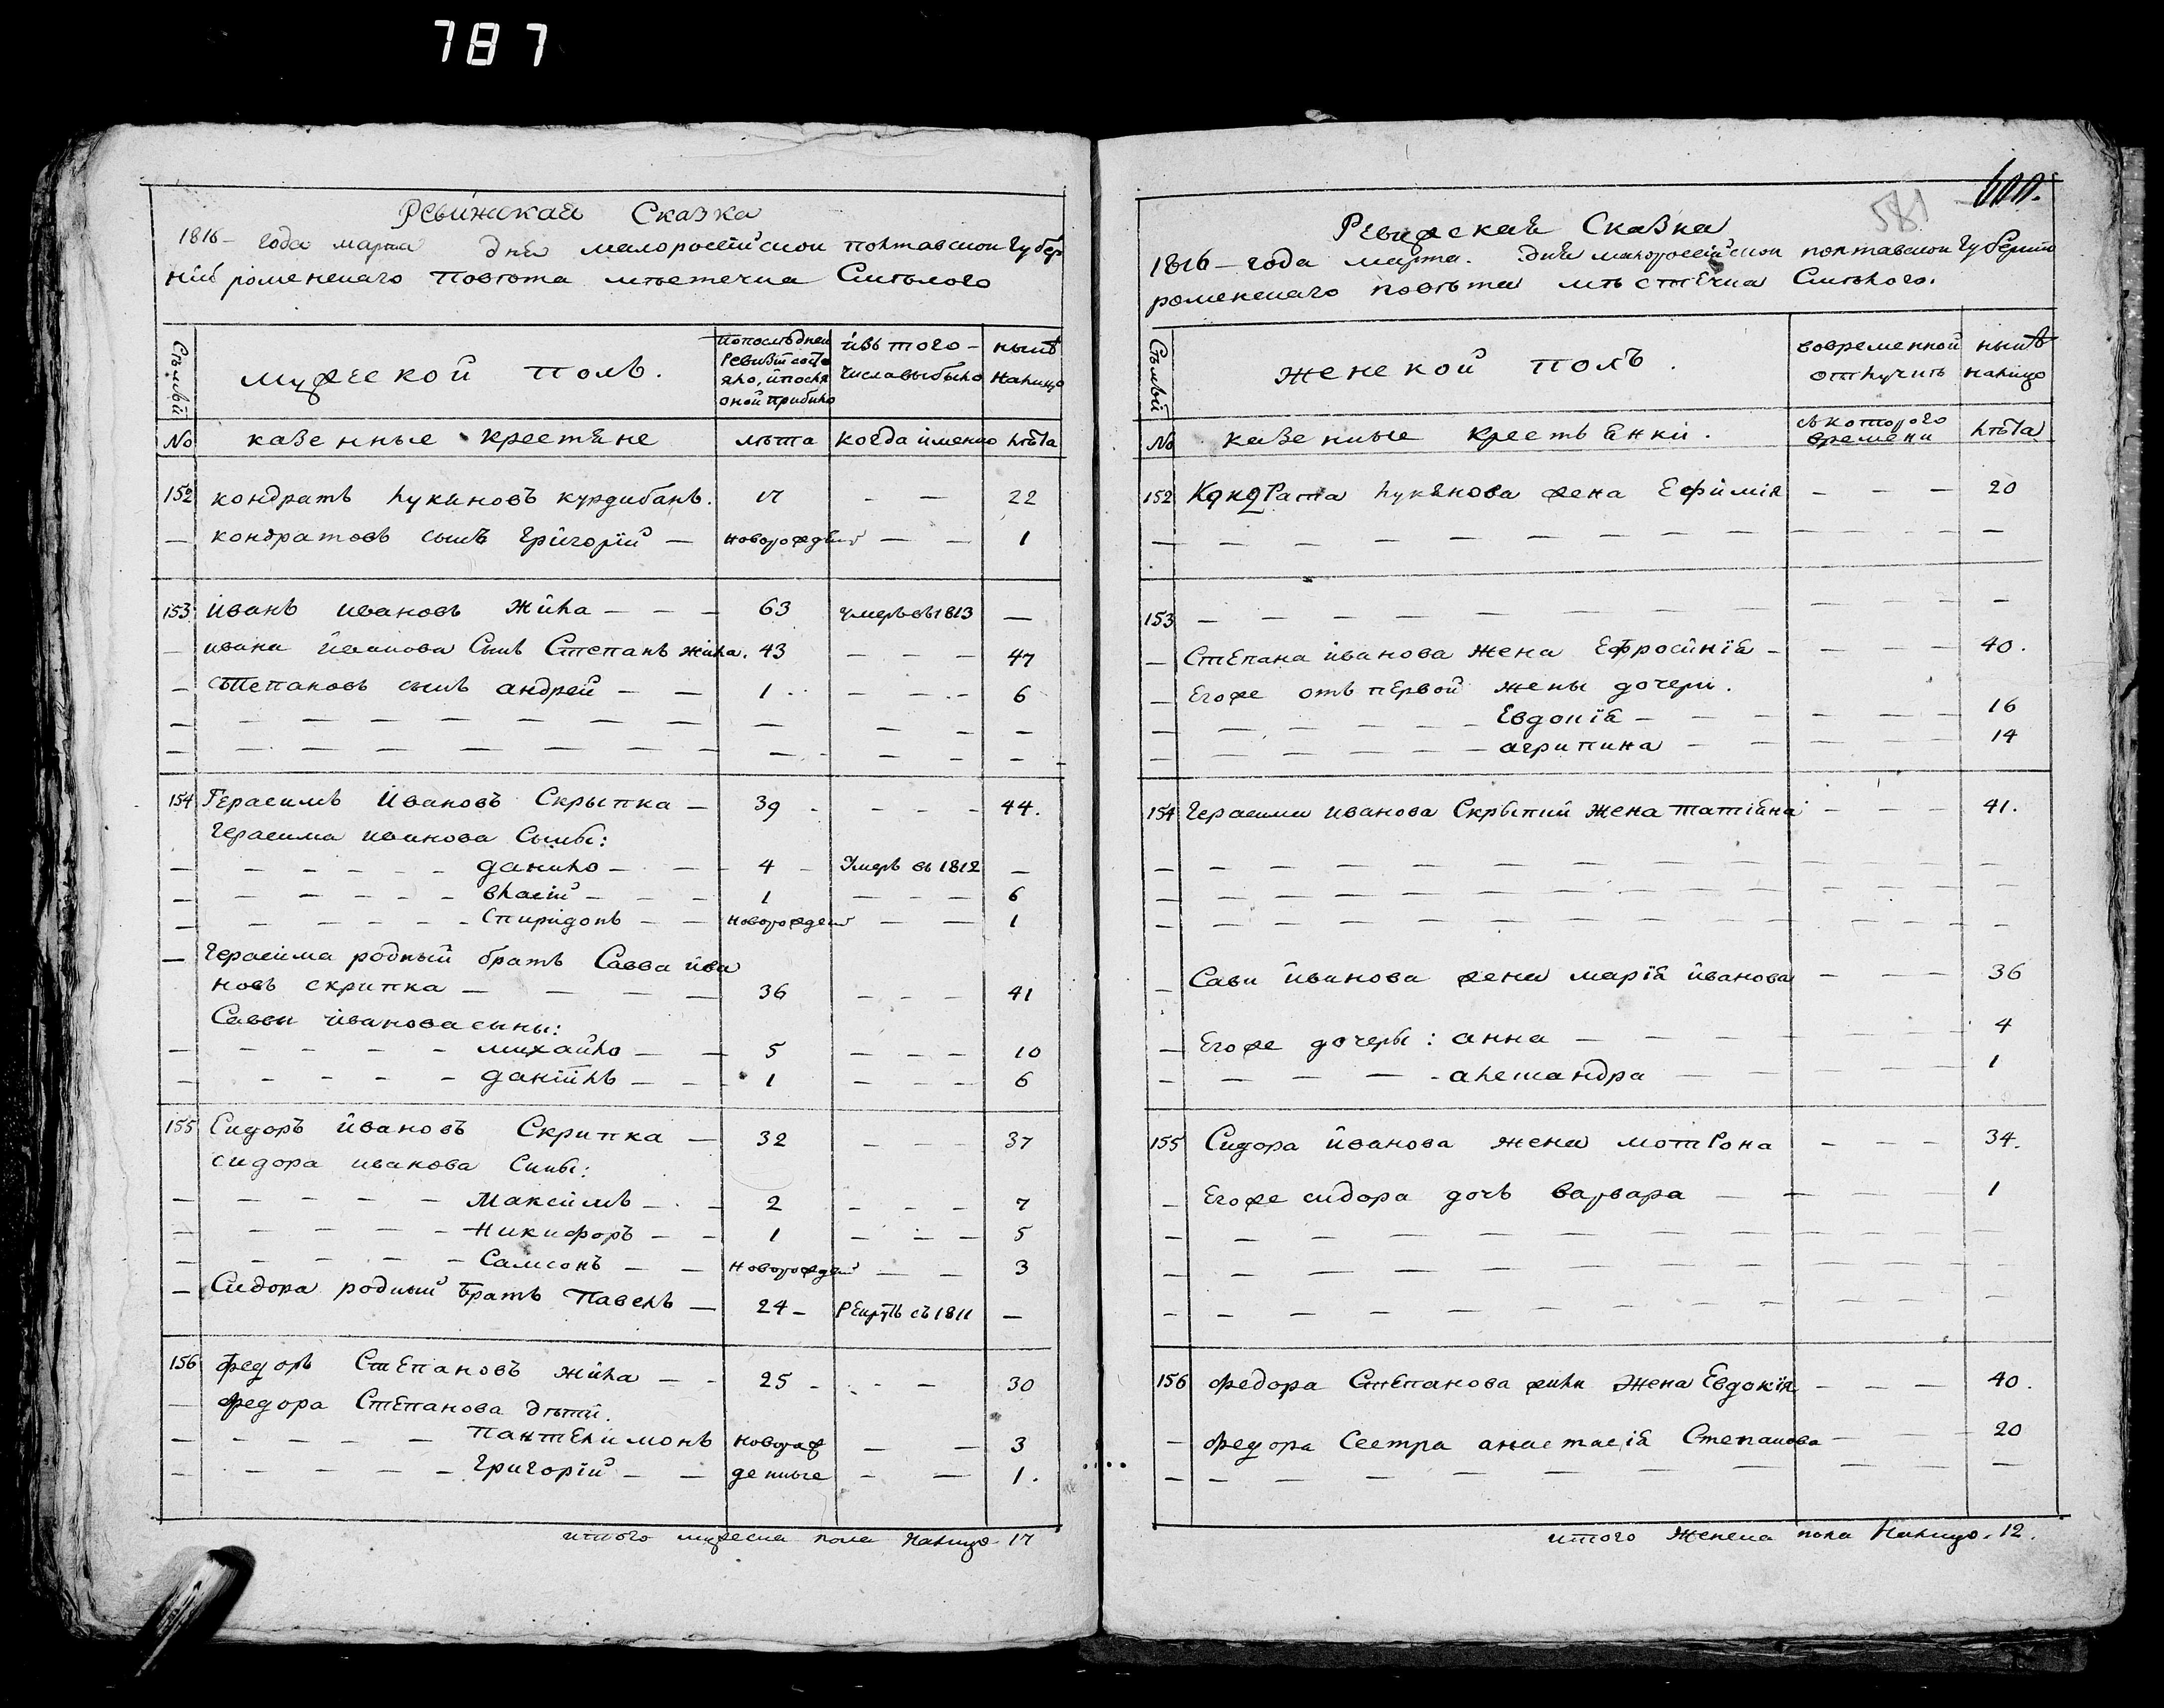 787
Ревижская Сказка
1816 – года марта дня малороссийской полтавской губер
нии роменского повѣта мѣстечка Смѣлого
Сѣмьи
мужеской полъ.
попослѣдней ревизіи состояло, и после оной прибыло
изъ того – числа выбыло
нынѣ налицо
No казенные крестяне лѣта когда именно лѣта
152 кондратъ лукяновъ курдибанъ. 17 – – 22
– кондратовъ сынъ григорій – новорожденъ – – 1
153 иванъ ивановъ жила – – – 63 умеръ въ 1813 –
– ивана иванова Сынъ Степанъ жила. 43 – – – 47
– степановъ сынъ андрей – – 1 – – – 6
154 Герасимъ Ивановъ Скрыпка – 39 – – – 44.
герасима иванова Сыны:
– – – – – данило – – 4 – Умеръ въ 1812 –
– – – – – власій – – – 1 – – – 6
– – – – – Спиридонъ – – новорожденъ – – 1
– герасима родный братъ Савва ива
новъ скрипка – – – – 36 – – – 41
Саввы иванова сыны:
– – – – – михайло – – 5 – – – 10
– – – – – даніилъ – – 1 – – 6
155 Сидоръ ивановъ Скрипка – 32 – – – 37
сидора иванова Сыны:
– – – – – Максимъ – – 2 – – – 7
– – – – – Никифоръ – – 1 – – – 5
– – – – – Самсонъ – – новорожден – – 3
– Сидора родный братъ Павелъ – 24 – Рекрутъ съ 1811 –
156 федоръ Степановъ жила – – 25 – – – 30
– федора Степанова дѣти.
– – – – – пантелимонъ новорож – – 3
– – – – – григорій – – денные – – 1.
итого мужеска пола налицо 17
600.
581
Ревижская Сказка
1816 – года марта. дня малороссійской полтавской губерніи
роменского повѣта мѣстечка Смѣлого.
Сѣмьи
женской полъ.
вовременной отлучкѣ
нынѣ налицо
No казенные крестьянки. съ которого времени лѣта
152 Кондрата лукянова жена Ефимія – – – 20
153 – – – – – – – – – – –
– Степана иванова жена Ефросинія – – – – 40.
– Егоже отъ первой жены дочери.
– – – – – – Евдокія – – – – – 16
– – – – – – агрипина – – – – – 14
154 герасима иванова Скрыпки жена татіяна – – – 41.
– Сави иванова жена марія иванова – – – 36
– Егоже дочеры: анна – – – – – 4
– – – – – александра – – – – 1
155 Сидора иванова жена мотрона – – – 34.
– Егоже сидора дочь варвара – – – 1
156 федора Степанова жили жена Евдокія – – – 40.
– федора Сестра анастасія Степанова – – – 20
итого женска пола налицо. 12.